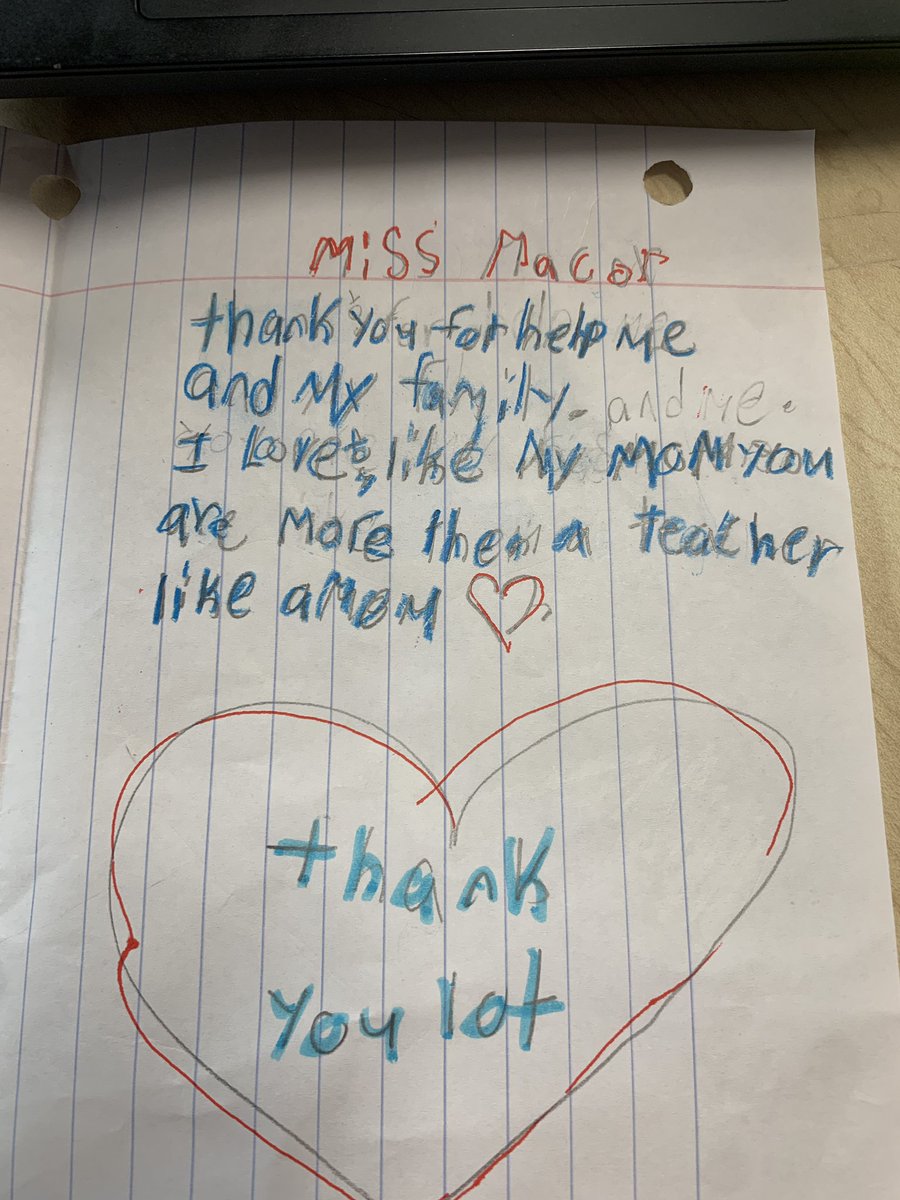 Miss Macor
thank you for help me
and my family. and me.
I Love like My MoM you
are More then a teacher
like a MoM
thank
you lot